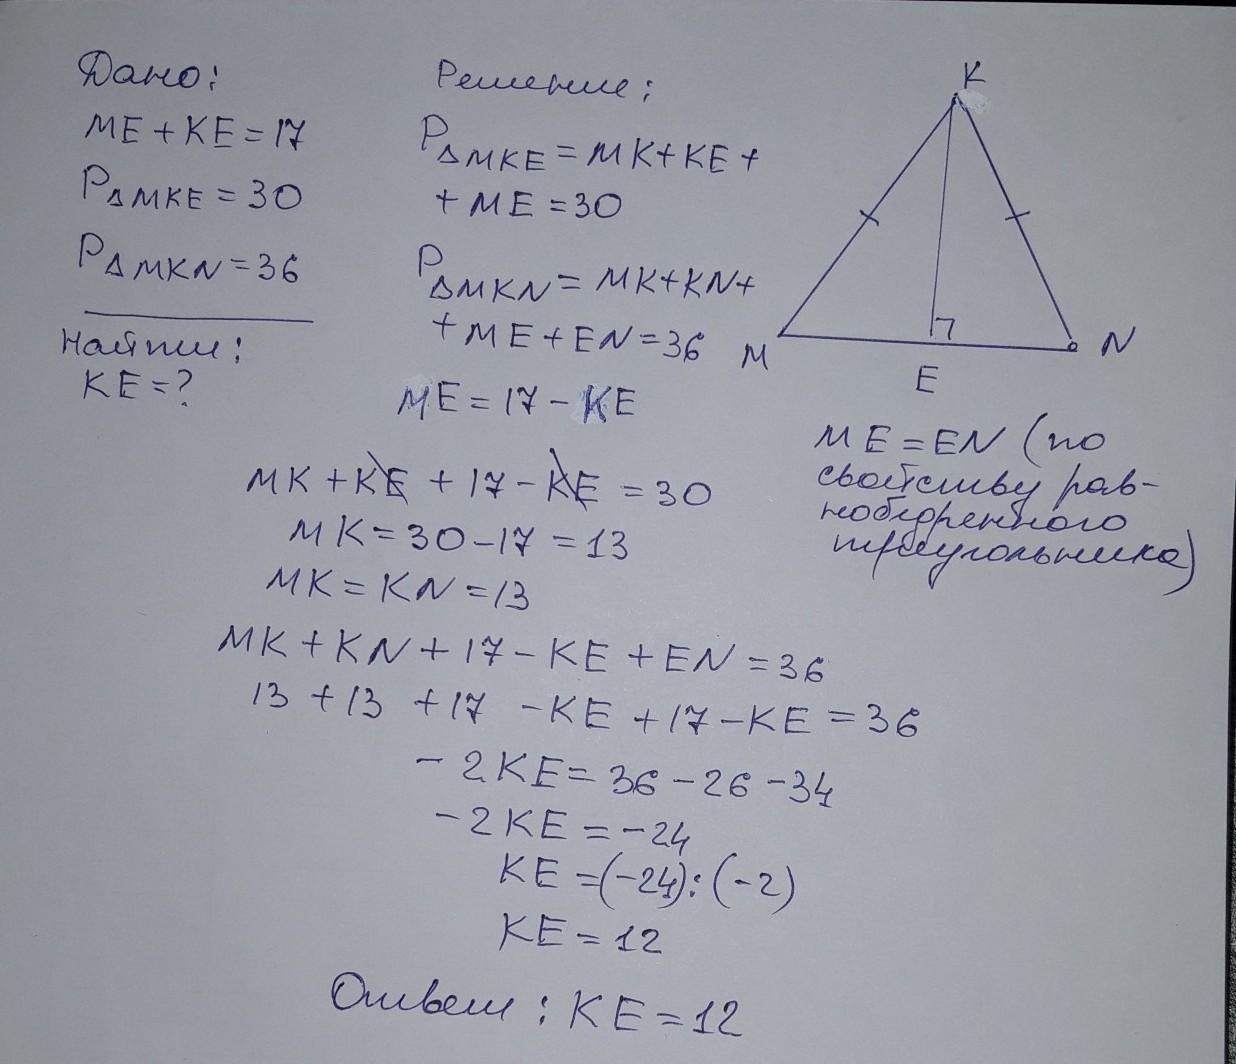 Дано:
ME + KE = 17
P△MKE = 30
P△MKN = 36
Найти:
KE = ?
Решение:
P△MKE = MK + KE +
+ ME = 30
P△MKN = MK + KN +
+ ME + EN = 36
ME = 17 - KE
K
M
E
N
ME = EN (по
свойству рав-
нобедренного
треугольника)
MK + KE + 17 - KE = 30
MK = 30 - 17 = 13
MK = KN = 13
MK + KN + 17 - KE + EN = 36
13 + 13 + 17 - KE + 17 - KE = 36
- 2KE = 36 - 26 - 34
- 2KE = - 24
KE = (-24) : (-2)
KE = 12
Ответ : KE = 12